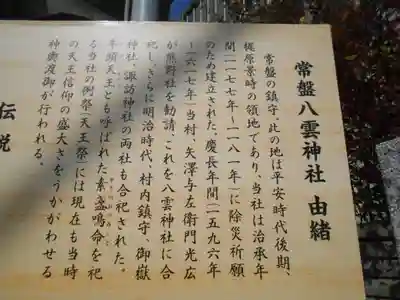 常盤八雲神社 由緒
常盤の鎮守、此の地は平安時代後期、
梶原景時の領地であり、当社は治承年
間(一一七七年〜一一八一年)に除災祈願
のため建立された。慶長年間(一五九六年
〜一六一七年)当村、矢澤与左衛門光広
が熊野社を勧請、これを八雲神社に合
祀し、さらに明治時代、村内鎮守、御嶽
神社、諏訪神社の両社も合祀された。
牛頭天王とも呼ばれた素盞鳴命を祀
る当社の例祭(天王祭)には現在も当時
の天王信仰の盛大さをうかがわせる
神輿渡御が行われる。
伝説